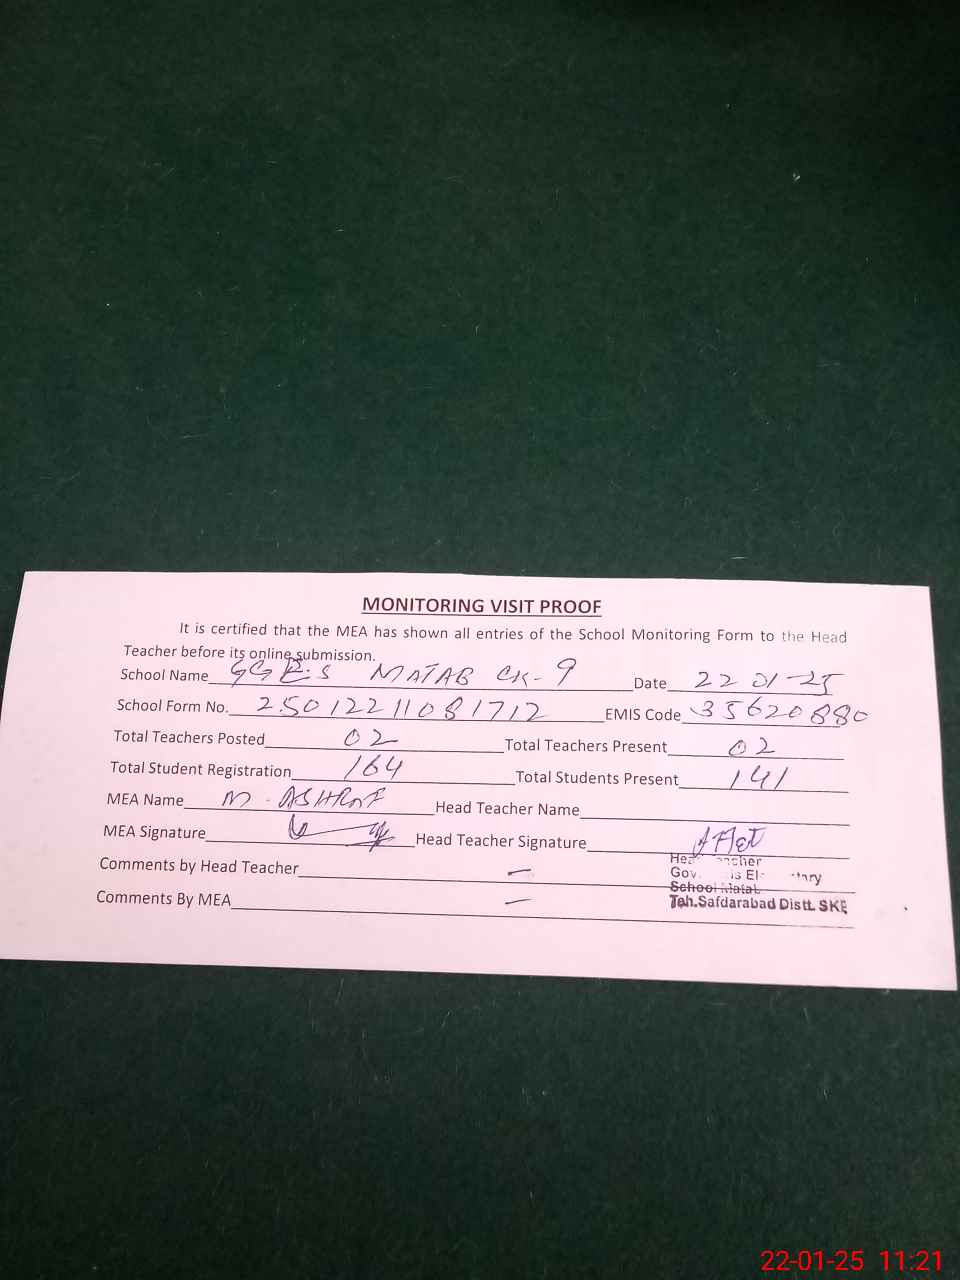 MONITORING VISIT PROOF
It is certified that the MEA has shown all entries of the School Monitoring Form to the Head
Teacher before its online submission.
School Name GGES MATAB CK-9 Date 22 01-25
School Form No. 25012211081712 EMIS Code 35620880
Total Teachers Posted 02 Total Teachers Present 02
Total Student Registration 164 Total Students Present 141
MEA Name M. ASHRAF Head Teacher Name
MEA Signature Head Teacher Signature
Comments by Head Teacher —
Comments By MEA —
School Matab
Teh.Safdarabad Distt. SKP
22-01-25 11:21